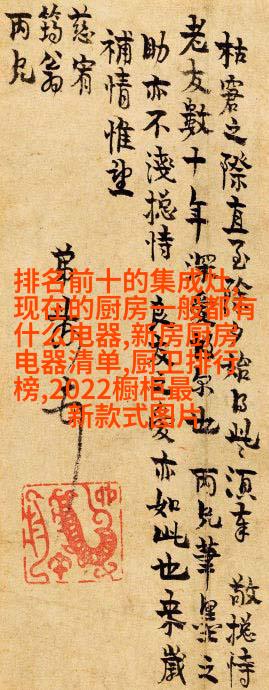 排名前十的集成灶,
现在的厨房一般都有
什么电器,新房厨房
电器清单,厨卫排行
榜,2022橱柜最
新款式图片
枯窘之際直至除夕始
老友數十年 也 丙兄筆墨之
助亦不淺 恃 亦如此也 歲
補情惟望
慈宥
筠翁
丙兄
弟